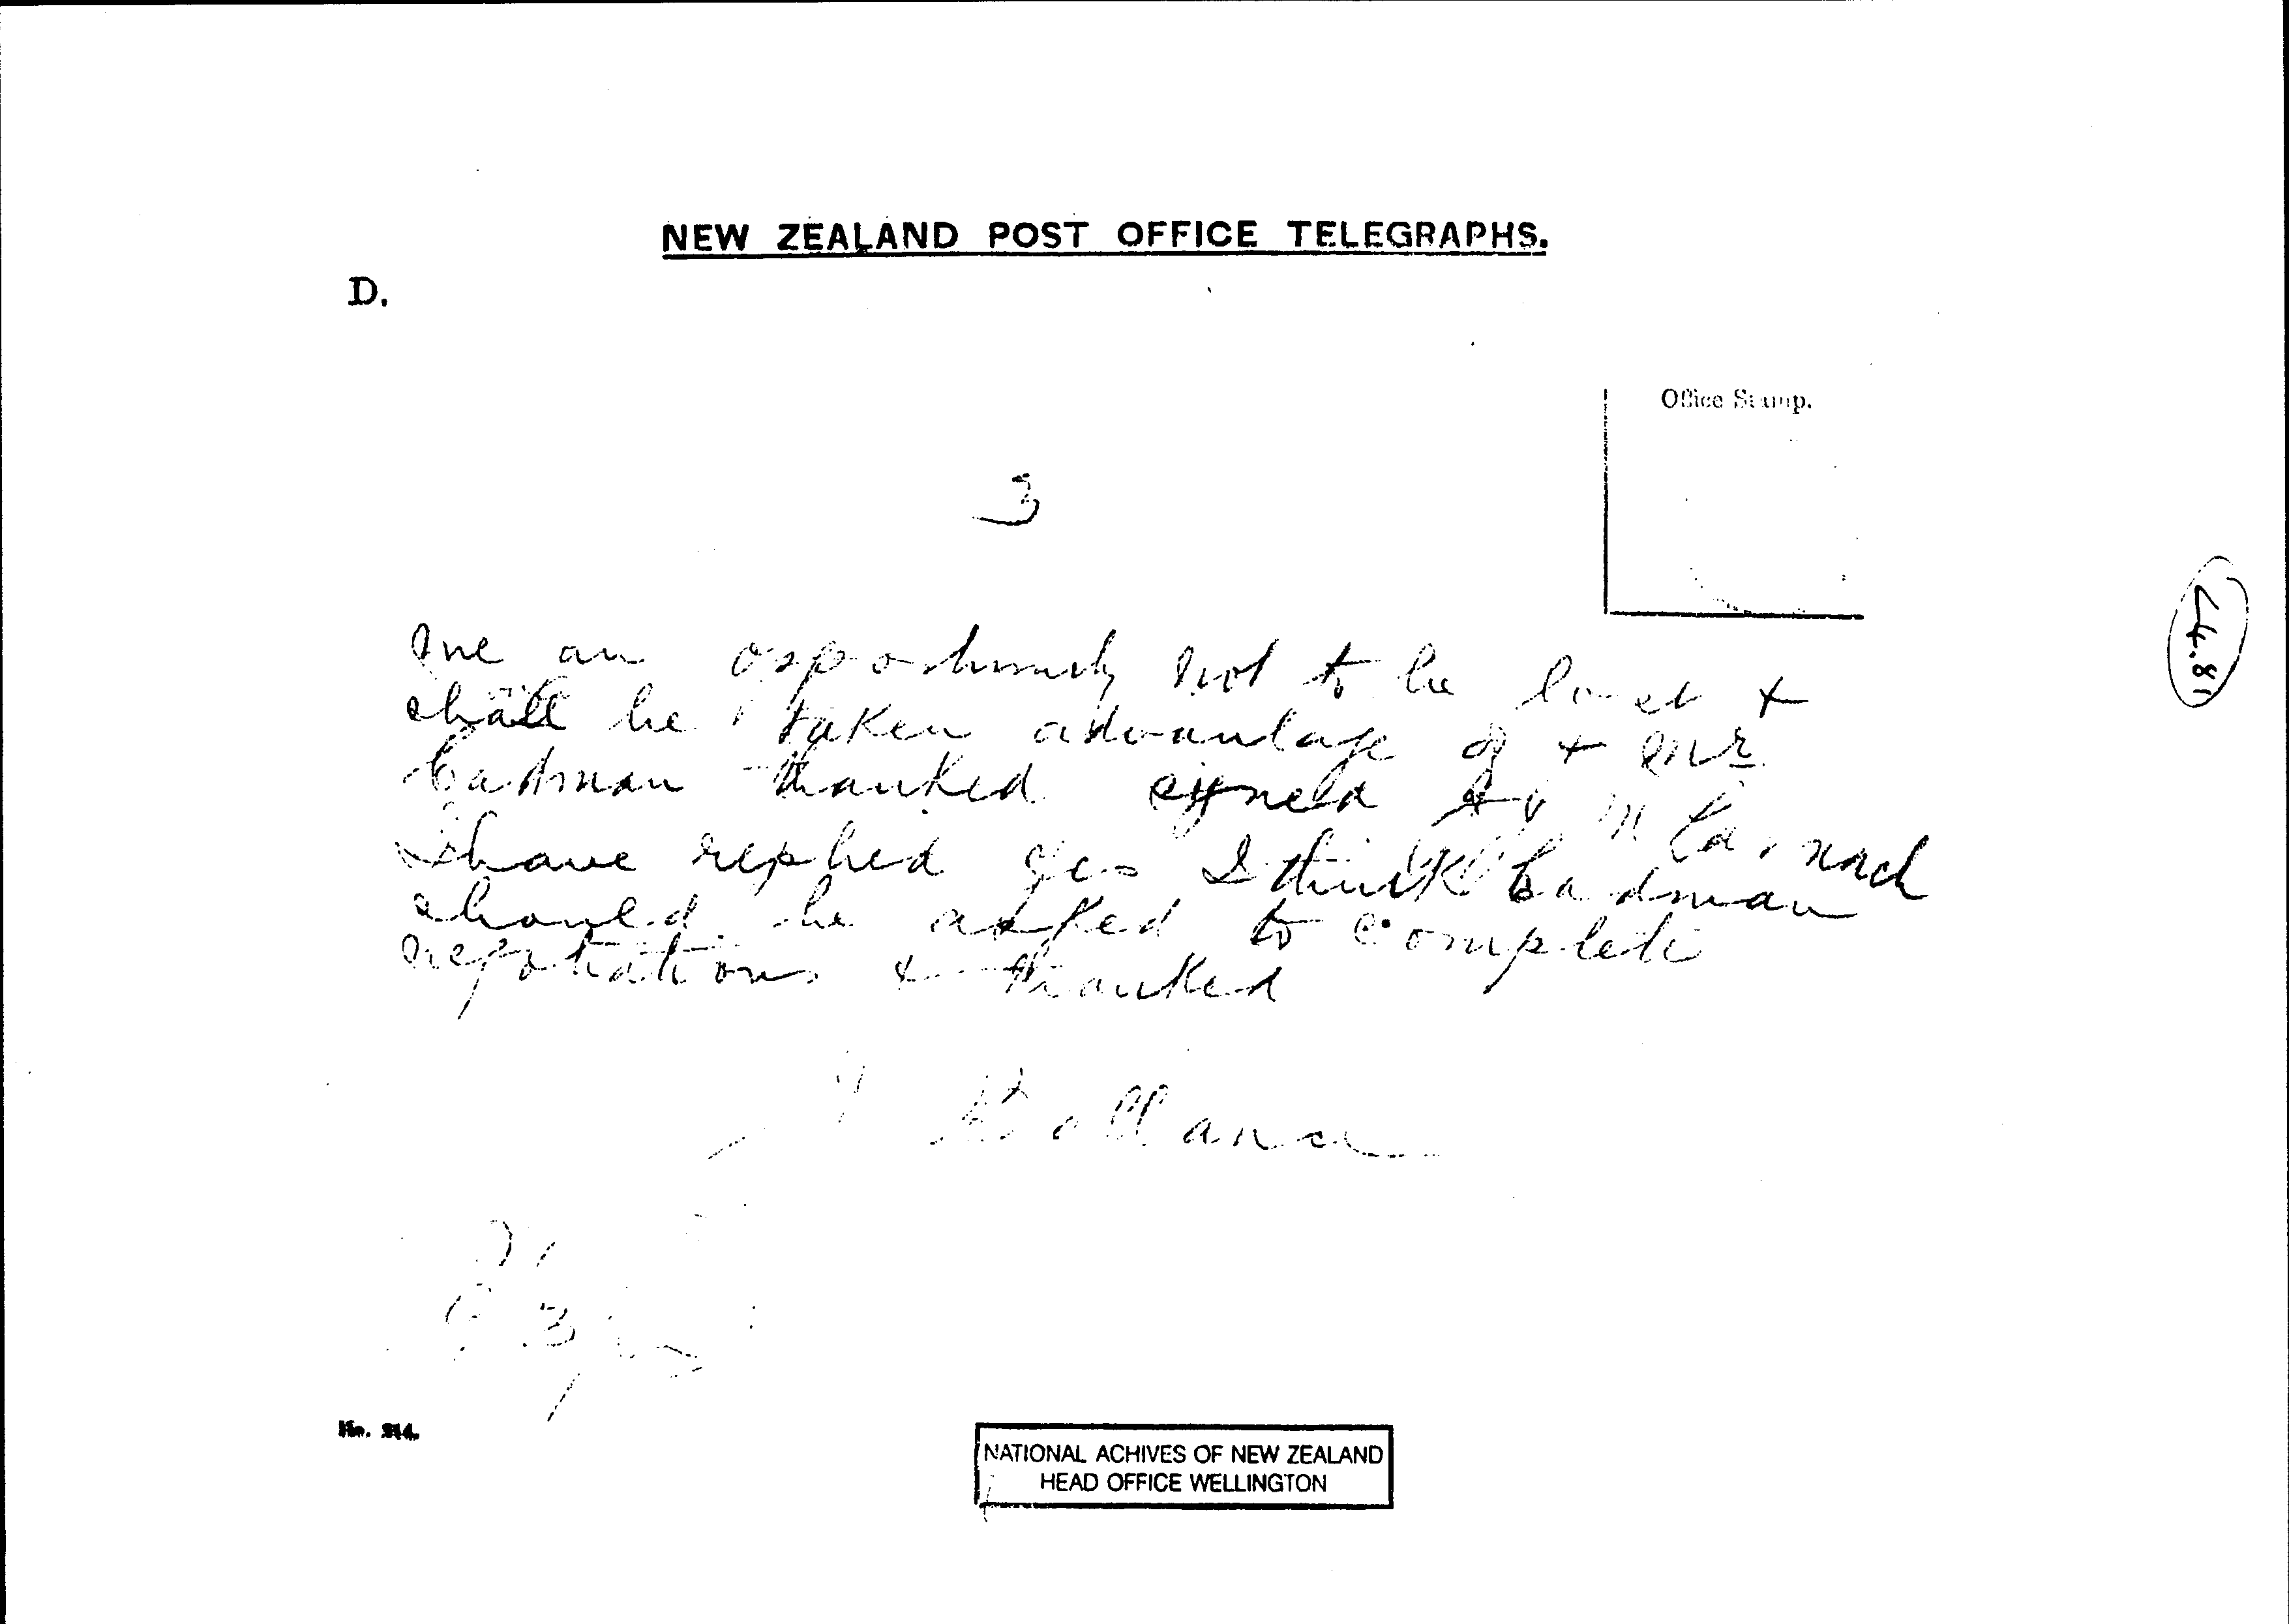 NEW ZEALAND POST OFFICE TELEGRAPHS.
D.
Office Stamp.
3
me an opportunity not to be lost &
shall be taken advantage of & Mr
Cadman thanked signed W M Larnach
I have replied yes I think Cadman
should be asked to complete
negotiations & thanked
J Ballance
44.81
No. 214.
NATIONAL ACHIVES OF NEW ZEALAND
HEAD OFFICE WELLINGTON